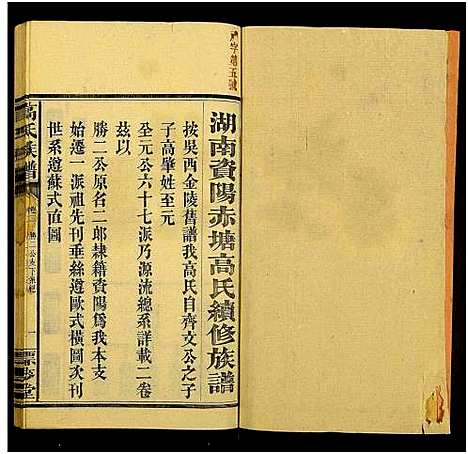 禮字第五號
湖南資陽赤塘高氏續修族譜
按吳西金陵舊譜我高氏自齊文公之子
子高肇姓至元
至元公六十七派乃源流總系詳載二卷
茲以
勝二公原名二郎隷籍資陽爲我本支
始遷一派祖先刊垂絲遵歐式橫圖次刊
世系遵蘇式直圖
高氏族譜
勝二公
一
堂